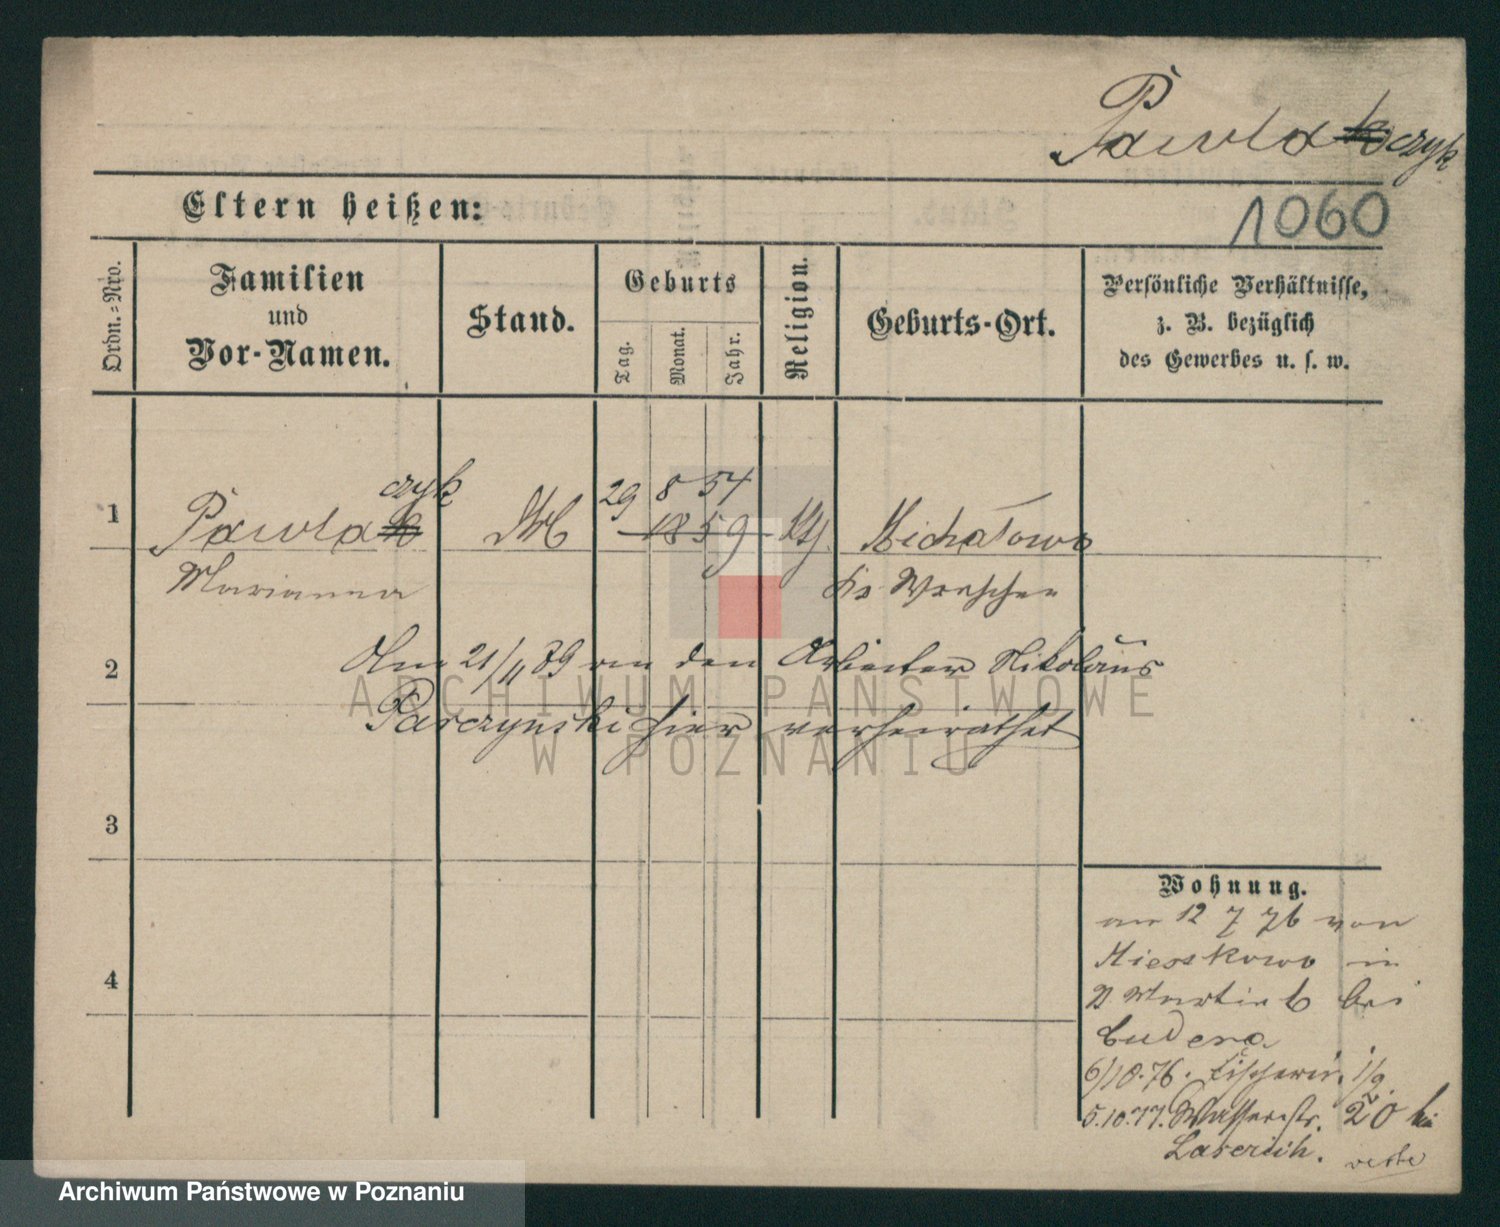 Pawlakczyk
Eltern heißen:
1060
Ordn.=Nro.
Familien
und
Vor-Namen.
Stand.
Geburts
Tag.
Monat.
Jahr.
Religion.
Geburts-Ort.
Persönliche Verhältnisse,
z. B. bezüglich
des Gewerbes u. s. w.
czyk
29 8 54
1
Pawlak
1859
Michałowo
Marianna
Kr. Wreschen
2
Am 21/11 89 an den Arbeiter Nikolaus
Parczynski hier verheirathet
ARCHIWUM PAŃSTWOWE
W POZNANIU
3
Wohnung.
am 12 7 76 von
Mieskowo in
4
Martin 6 bei
6/10.76. Fischerei 1/9.
5.10.77. Wasserstr. 20 bei
Archiwum Państwowe w Poznaniu